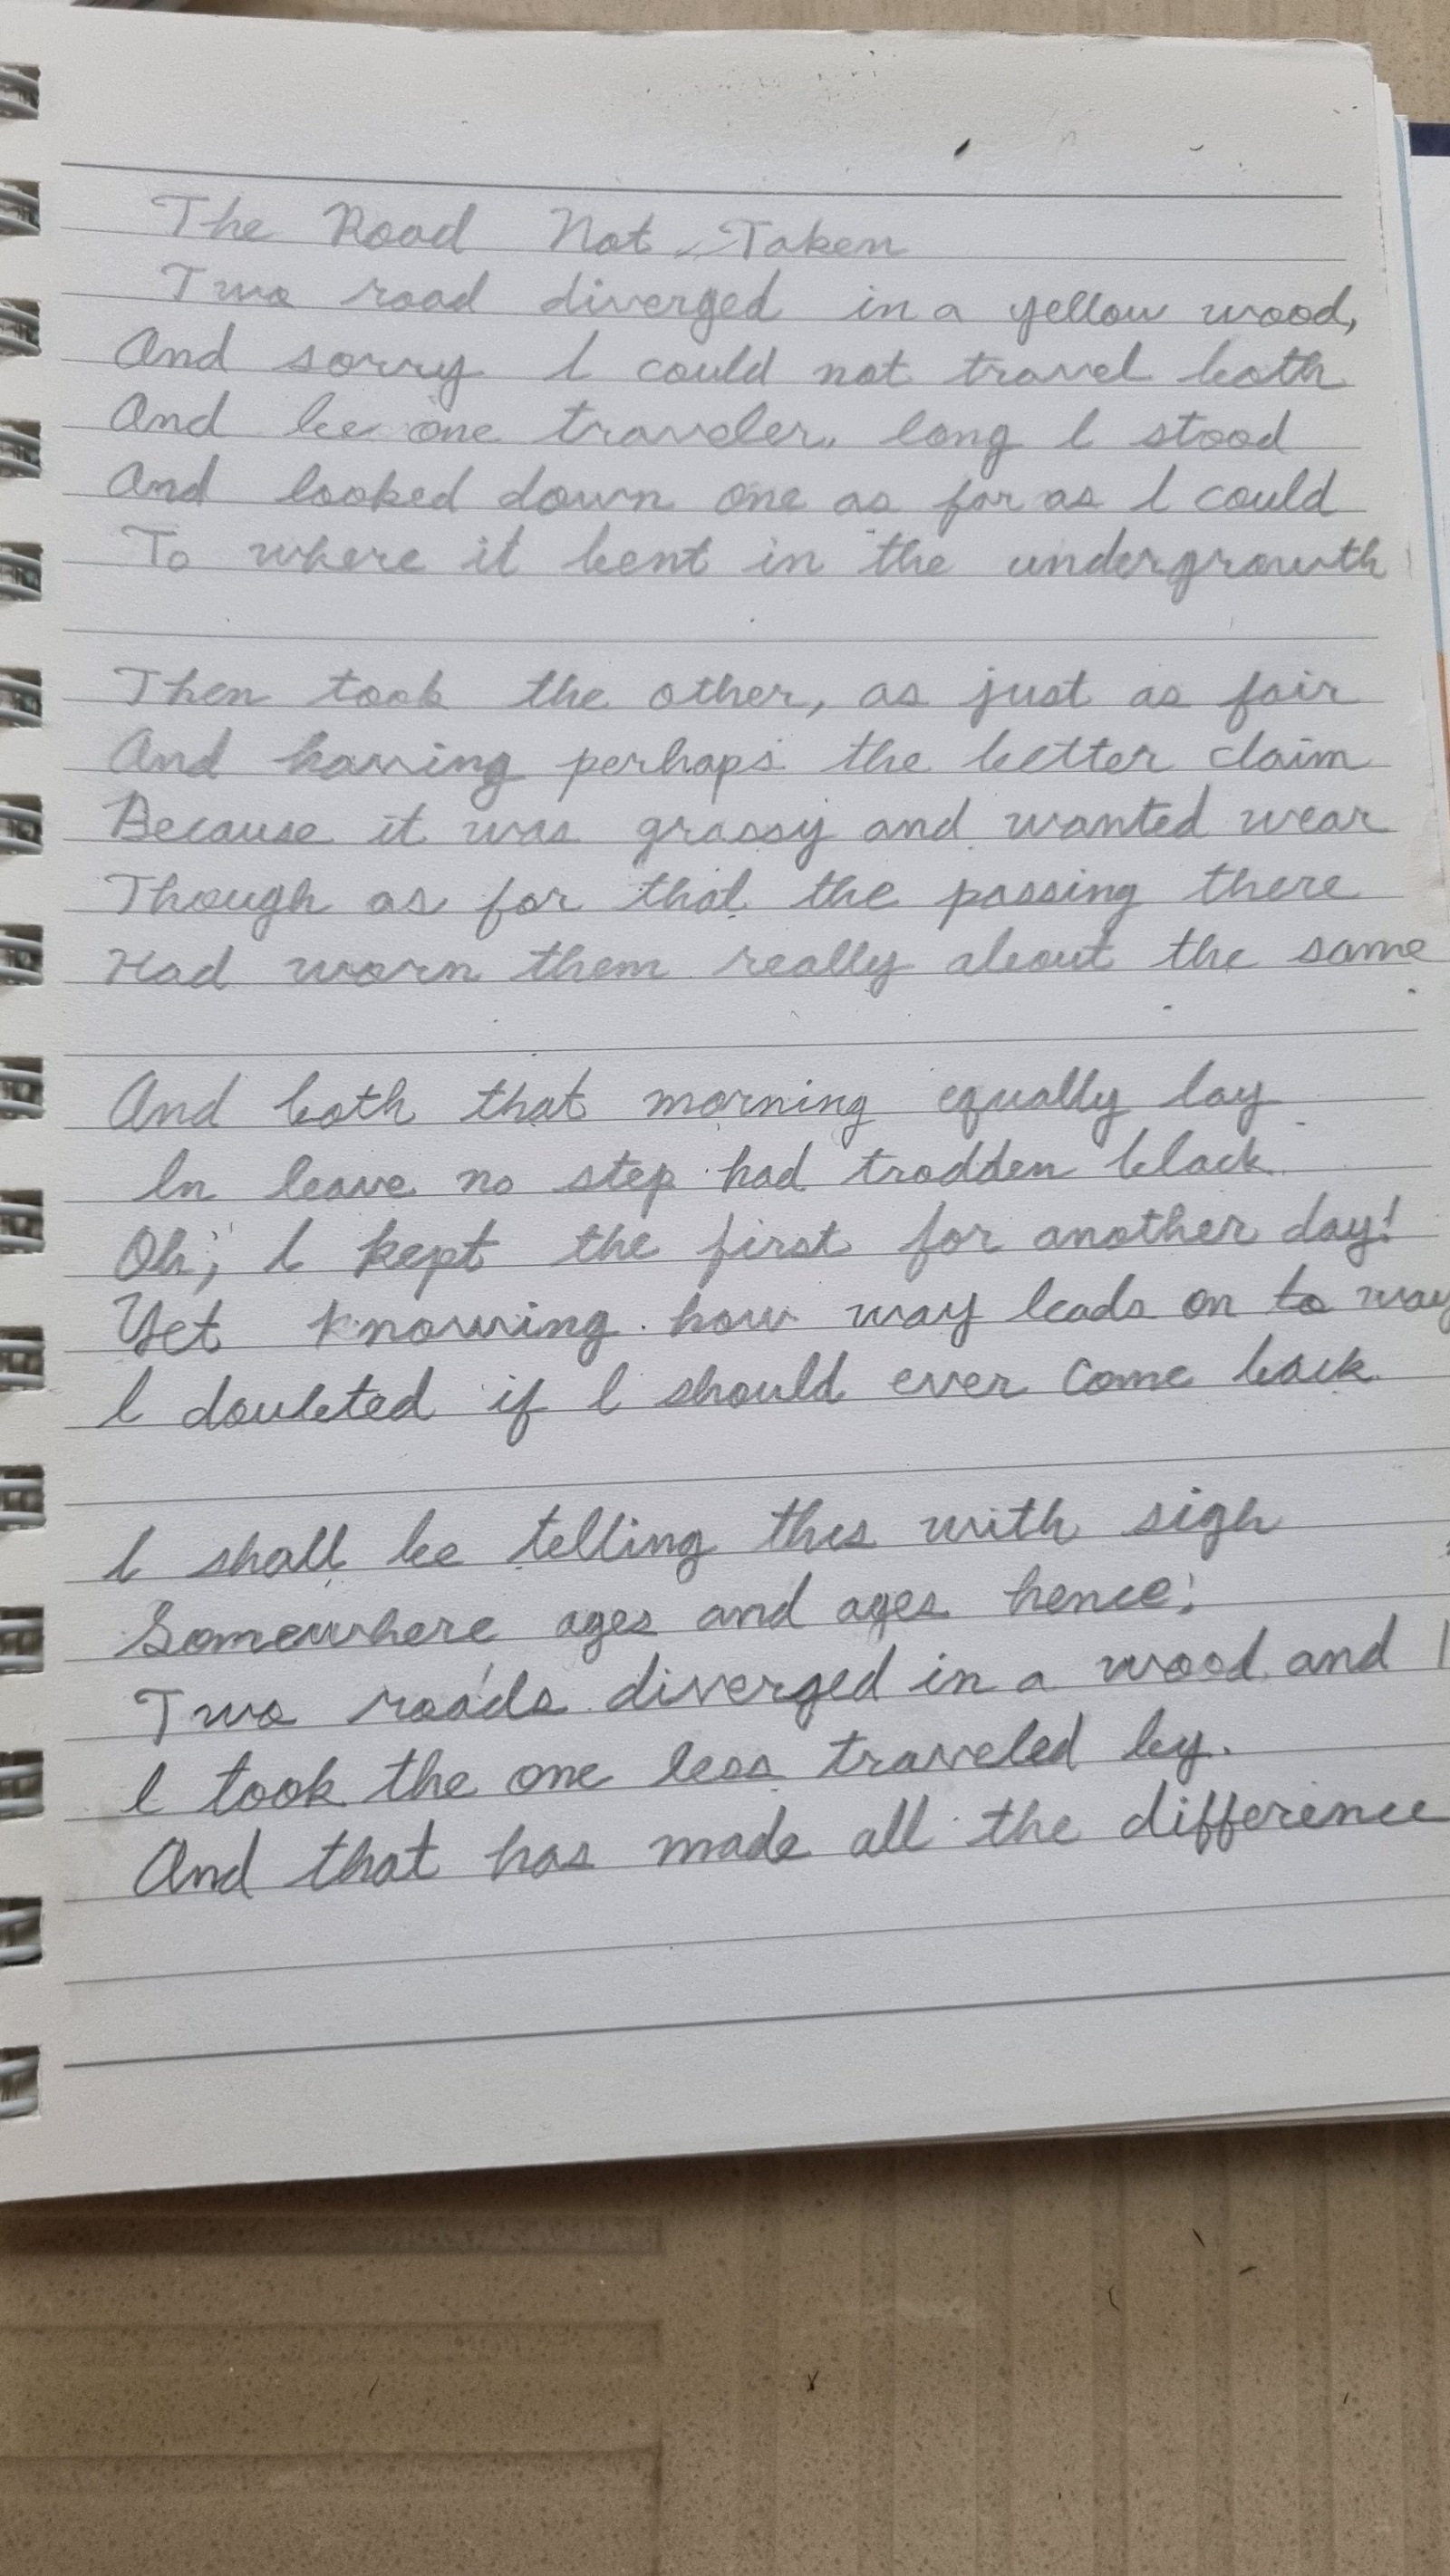 The Road Not Taken
Two road diverged in a yellow wood,
And sorry I could not travel both
And be one traveler, long I stood
And looked down one as far as I could
To where it bent in the undergrowth
Then took the other, as just as fair
And having perhaps the better claim
Because it was grassy and wanted wear
Though as for that the passing there
Had worn them really about the same
And both that morning equally lay
In leave no step had trodden black
Oh, I kept the first for another day!
Yet knowing how way leads on to way
I doubted if I should ever come back
I shall be telling this with sigh
Somewhere ages and ages hence:
Two roads diverged in a wood and I
I took the one less traveled by.
And that has made all the difference